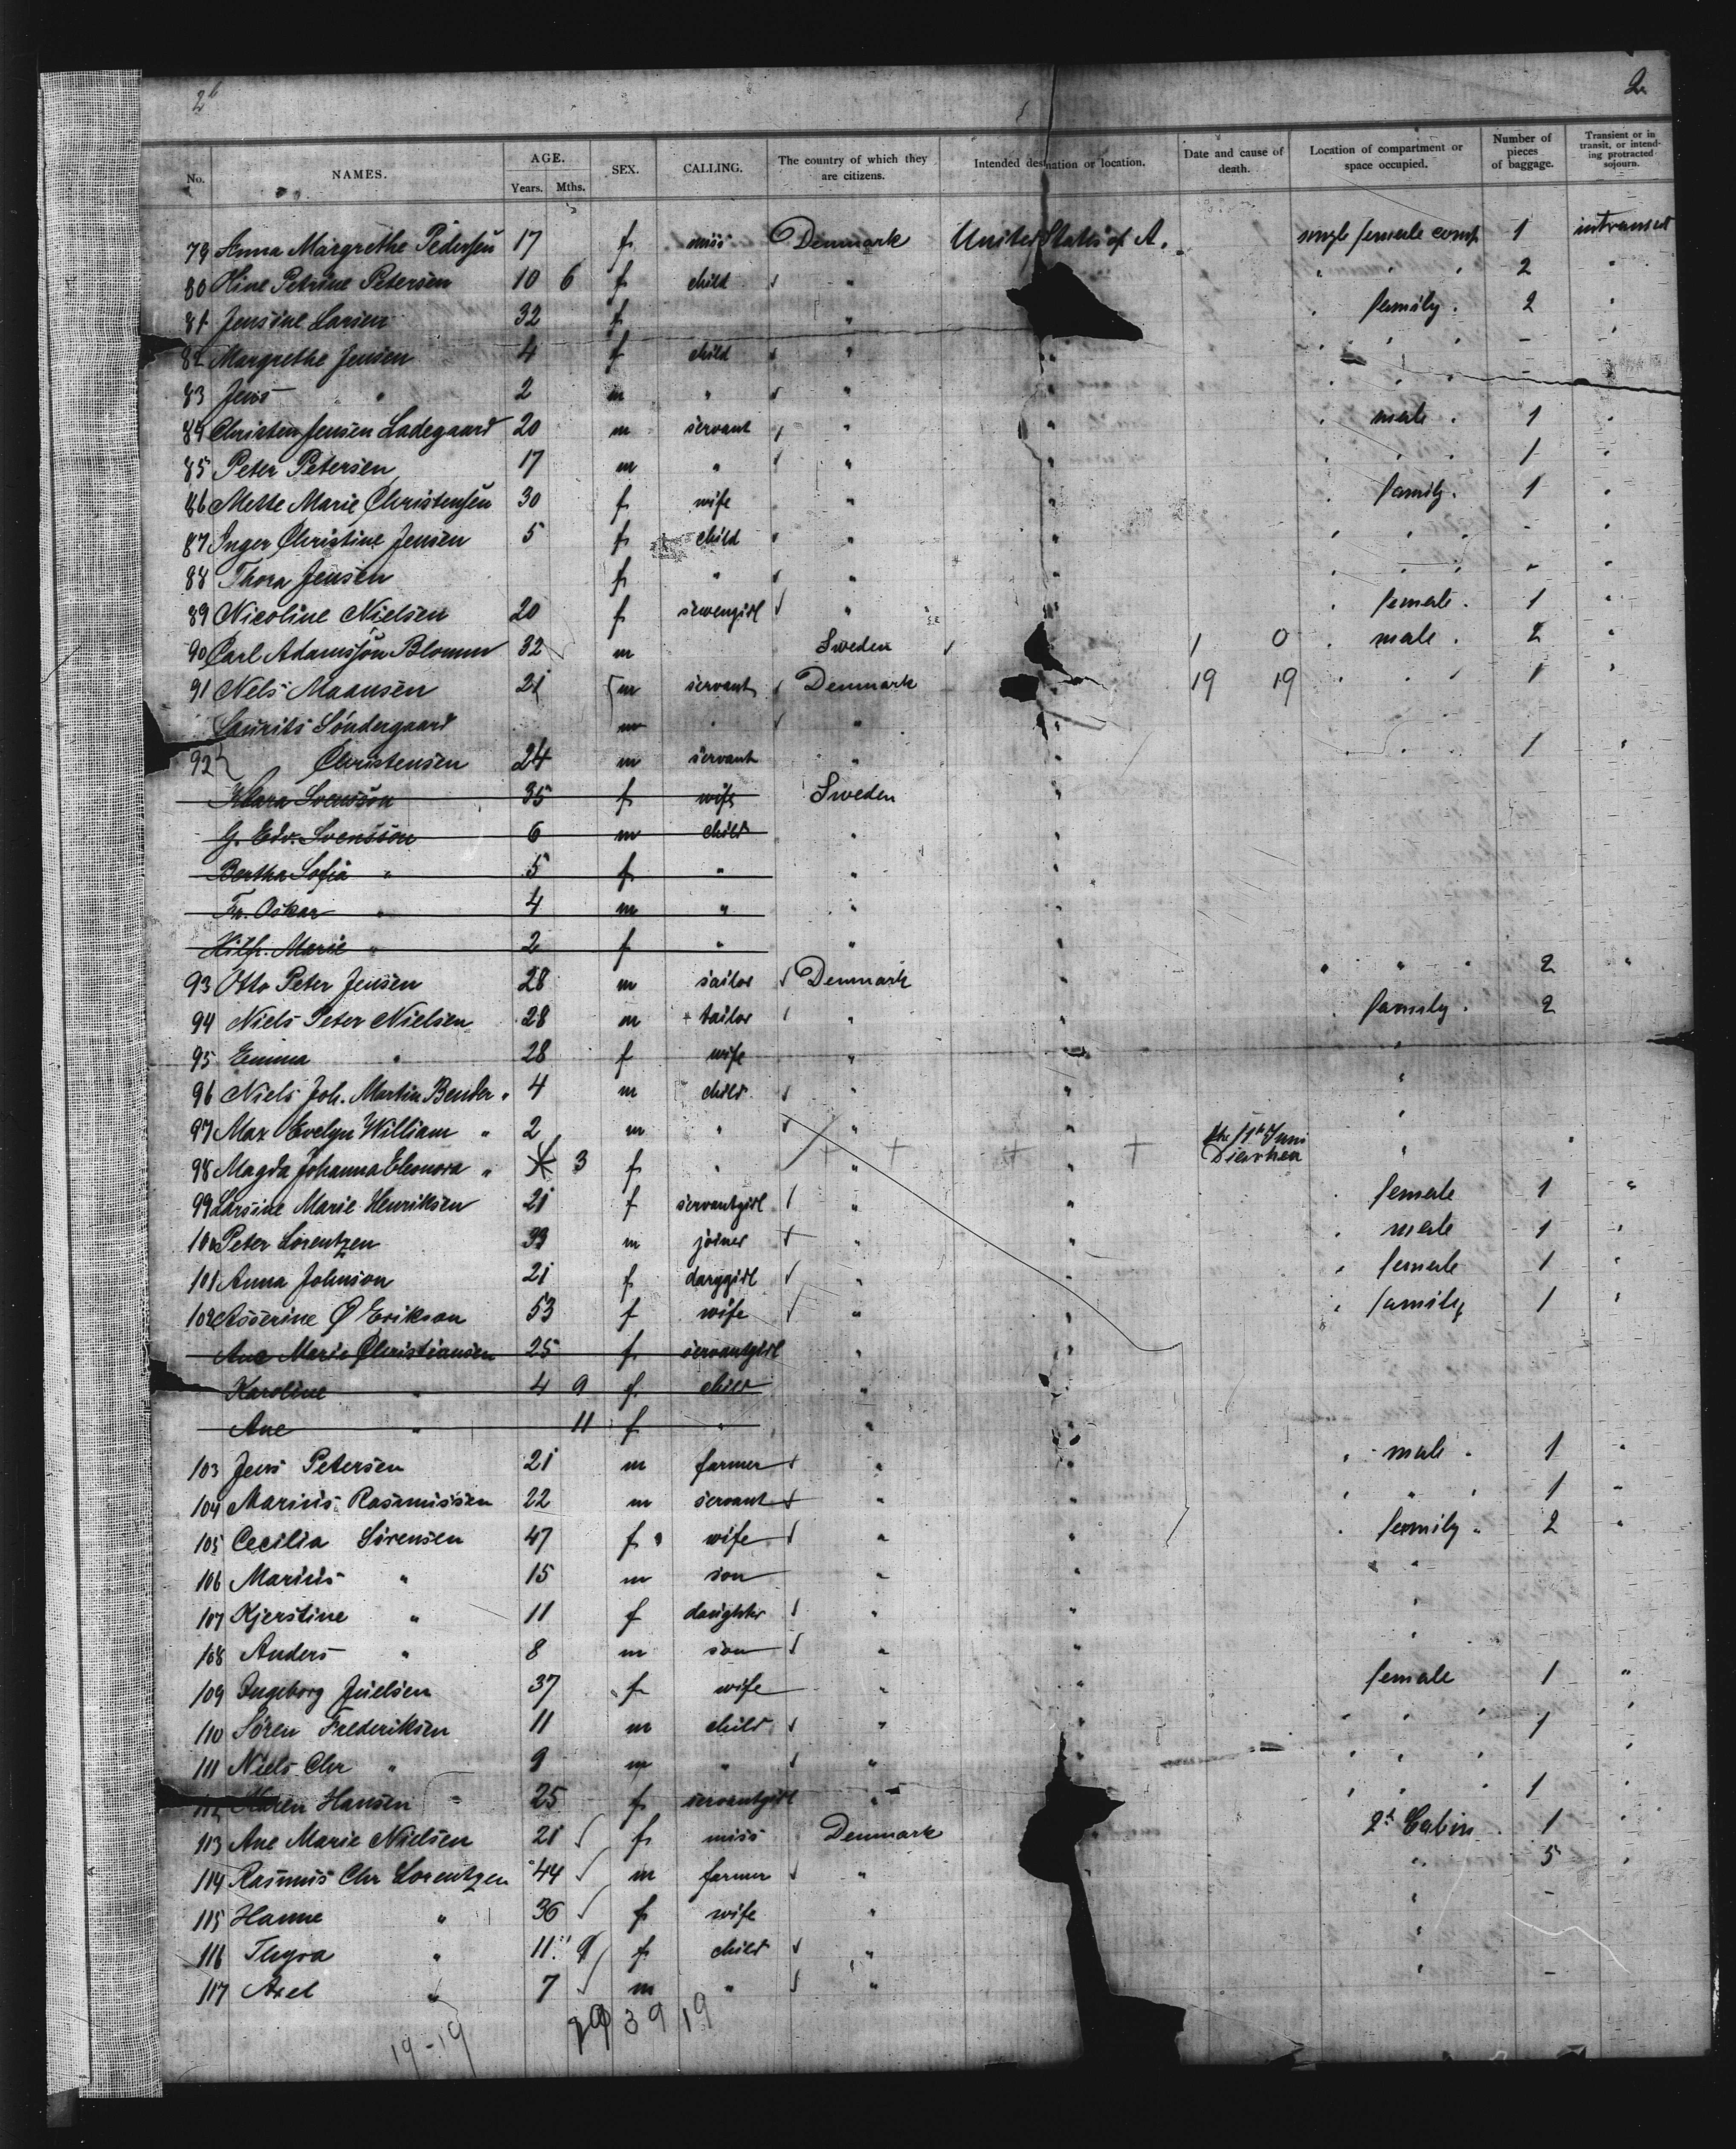 2
No. NAMES. AGE. Years. Mths. SEX. CALLING. The country of which they are citizens. Intended destination or location. Date and cause of death. Location of compartment or space occupied. Number of pieces of baggage. Transient or in transit, or intending protracted sojourn.
79 Anna Margrethe Pedersen 17 f miss Denmark United States of A. single female comp 1 intransit
80 Oline Petrine Petersen 10 6 f child " " " " 2 "
81 Jensine Larsen 32 f " " family " 2 "
82 Margrethe Jensen 4 f child " " " " " - "
83 Jens " 2 m " " " " " " -
84 Christen Jensen Ladegaard 20 m servant " " " male " 1 "
85 Peter Petersen 17 m " " " " " " 1 "
86 Mette Marie Christensen 30 f wife " " " family " 1 "
87 Inger Christine Jensen 5 f child " " " " " - "
88 Thora Jensen f " " " " " " - "
89 Nicoline Nielsen 20 f sewengirl " " " female " 1 "
90 Carl Adamsson Blomm 32 m Sweden " 1 0 " male " 2 "
91 Nels Maansen 21 m servant Denmark " 19 19 " " " 1 "
Laurits Söndergaard m " " "
92 Christensen 24 m servant " " " " 1 "
Klara Svensson 35 f wife Sweden "
G. Edv. Svensson 6 m child " "
Bertha Sofia " 5 f " " "
Fr. Oskar " 4 m " " "
Hilfr. Marie " 2 f " " "
93 Otto Peter Jensen 28 m sailor Denmark " " " " 2 "
94 Niels Peter Nielsen 28 m tailor " " " family " 2
95 Emma " 28 f wife " " "
96 Niels Joh. Martin Bender " 4 m child " " "
97 Max Evelyn William " 2 m " " " "
98 Magda Johanna Eleonora " 3 f " " " the 11th Juni Diarrhea "
99 Larsine Marie Henriksen 21 f servantgirl " " " female 1 "
100 Peter Lorentzen 33 m joiner " " " male 1 "
101 Anna Johnson 21 f darygirl " " " female 1 "
102 Asserine Ø Erikson 53 f wife " " " family 1 "
Ane Marie Christiansen 25 f servantgirl " "
Karoline " 4 9 f child " "
Ane " 11 f " " "
103 Jens Petersen 21 m farmer " " " male " 1 "
104 Marius Rasmussen 22 m servant " " " " " 1 "
105 Cecilia Sörensen 47 f wife " " " family " 2 "
106 Marius " 15 m son " " "
107 Kjerstine " 11 f daughter " " "
108 Anders " 8 m son " " "
109 Ingeborg Juelsen 37 f wife " " female 1 "
110 Sören Frederiksen 11 m child " " " " " 1 "
111 Niels Chr " 9 m " " " " " " "
112 Maren Hansen 25 f servantgirl " " " " 1 "
113 Ane Marie Nielsen 21 f miss Denmark 2d Cabin 1 "
114 Rasmus Chr Lorentzen 44 m farmer " " " 5 "
115 Hanne " 36 f wife " " -
116 Thyra " 11 9 f child " "
117 Axel " 7 m " " " -
39 19
19-19